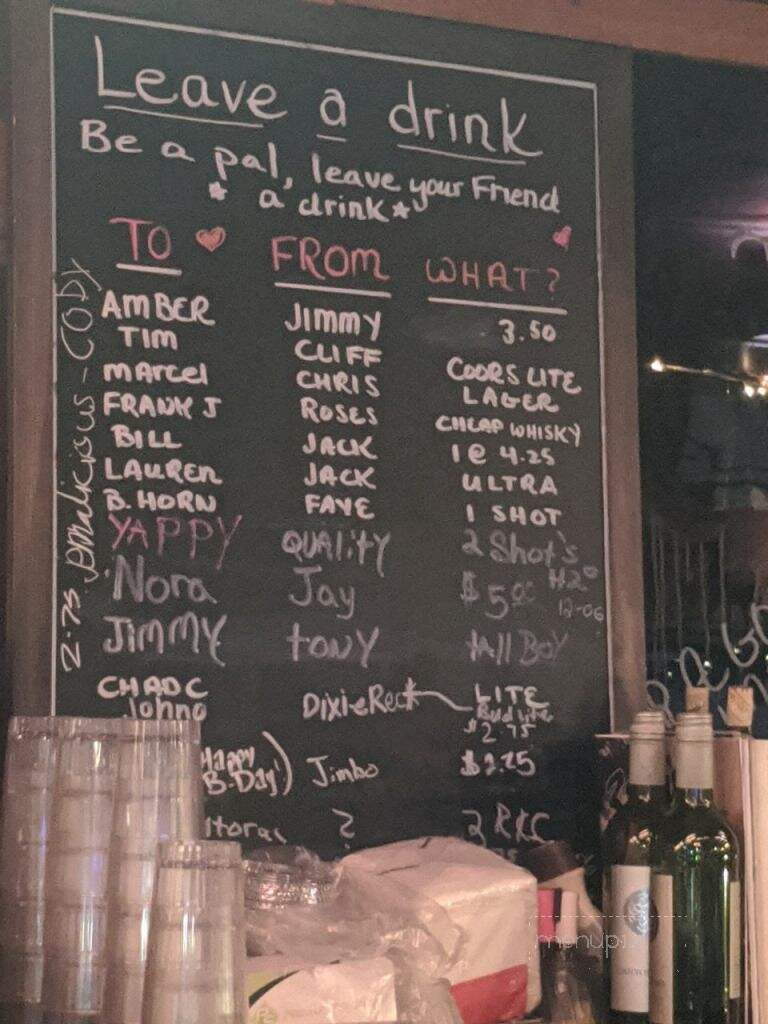 Leave a drink
Be a pal, leave your Friend
* a drink *
TO FROM WHAT?
AMBER JIMMY 3.50
TIM CLIFF COORS LITE
Marcel CHRIS LAGER
FRANK J ROSES CHEAP WHISKY
BILL JACK 1 @ 4.25
LAUREN JACK ULTRA
B. HORN FAYE 1 SHOT
YAPPY QUALITY 2 Shot's
Nora Jay $5.00
12-06
JIMMY tONY tAll BoY
CHAD C DixieRect LITE
Johno Bud Lite
$2.75
Happy
B-Day!) Jimbo $2.75
? 2
2.75 - CODY
menupix